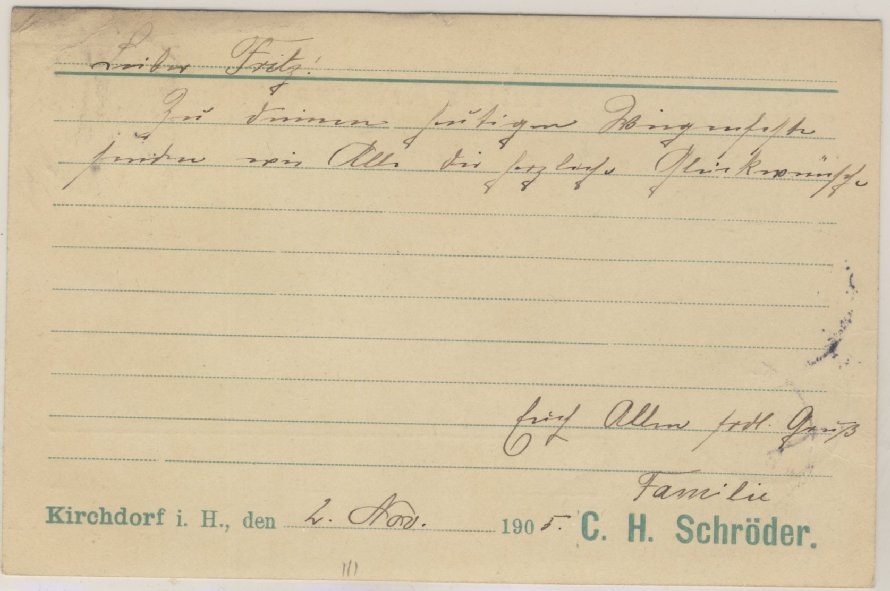 Lieber Fritz!
Zu deinem heutigen Wiegenfeste
senden wir Alle die herzlichs Glückwünsche
Euch Allen frdl. Gruß
Familie
Kirchdorf i. H., den 2. Nov. 1905. C. H. Schröder.